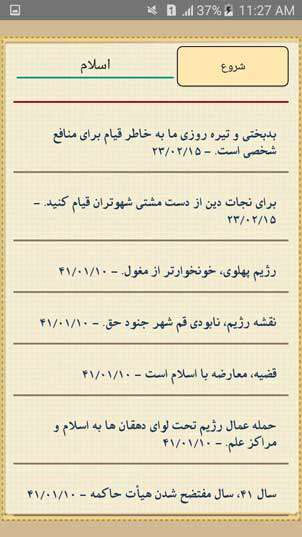 37% 11:27 AM
شروع
اسلام
بدبختی و تیره روزی ما به خاطر قیام برای منافع
شخصی است. - ۲۳/۰۲/۱۵
برای نجات دین از دست مشتی شهوتران قیام کنید. -
۲۳/۰۲/۱۵
رژیم پهلوی، خونخوارتر از مغول. - ۴۱/۰۱/۱۰
نقشه رژیم، نابودی قم شهر جنود حق. - ۴۱/۰۱/۱۰
قضیه، معارضه با اسلام است - ۴۱/۰۱/۱۰
حمله عمال رژیم تحت لوای دهقان ها به اسلام و
مراکز علم. - ۴۱/۰۱/۱۰
سال ۴۱، سال مفتضح شدن هیأت حاکمه - ۴۱/۰۱/۱۰